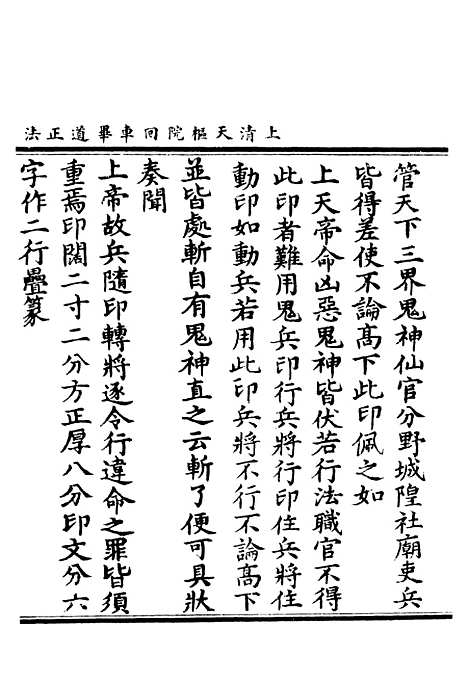 上清天樞院回車畢道正法
管天下三界鬼神仙官分野城隍社廟吏兵
皆得差使不論高下此印佩之如
上天帝命凶惡鬼神皆伏若行法職官不得
此印者難用鬼兵印行兵將行印住兵將住
動印如動兵若用此印兵將不行不論高下
並皆處斬自有鬼神直之云斬了便可具狀
奏聞
上帝故兵隨印轉將逐令行違命之罪皆須
重焉印闊二寸二分方正厚八分印文分六
字作二行疊篆